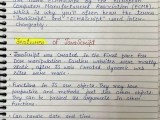 Computer Manufacturers Association (ECMA)
which is why you'll often hear the terms
"JavaScript" and "ECMAScript" used inter-
changeably.
Features of JavaScript
JavaScript was created in the first place for
DOM manipulation. Earlier websites were mostly
static, after JS was created dynamic web
sites were made.
Functions in JS are objects. They may have
properties and methods just like other objects.
They can be passed as arguments in other
functions.
Can handle date and time.